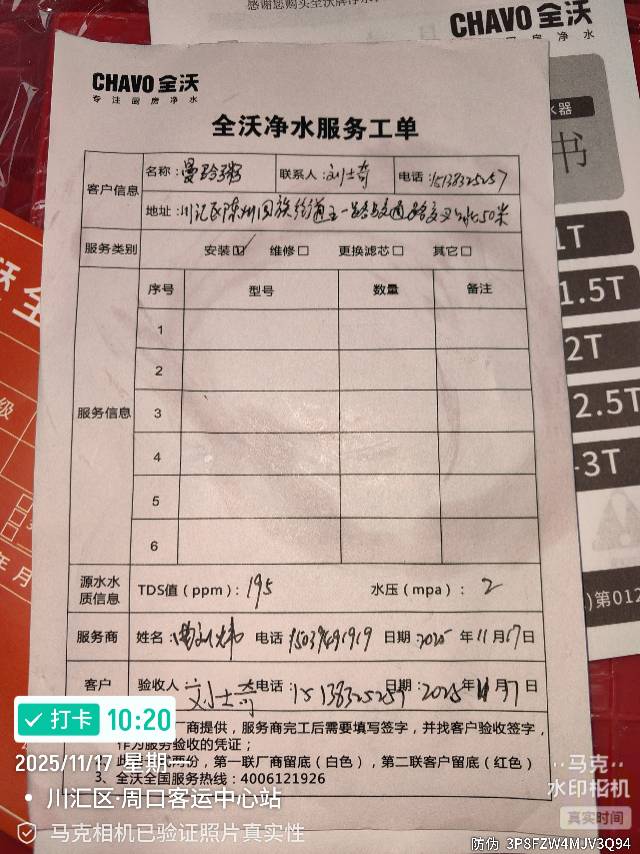 感谢您购买全沃牌净水
CHAVO 全沃
厨房净水
CHAVO 全沃
专注厨房净水
水器
书
全沃净水服务工单
客户信息
名称：曼玲粥
联系人：刘士奇
电话：15138325257
地址：川汇区陈州回族街道五一路与交通路交叉口北50米
服务类别
安装☑ 维修□ 更换滤芯□ 其它□
服务信息
序号 型号 数量 备注
1
2
3
4
5
6
1T
1.5T
2T
2.5T
-3T
源水水质信息
TDS值（ppm）：195
水压（mpa）：2
服务商
姓名：
电话
日期：2025年11月17日
客户
验收人：刘士奇
电话：15138325257
日期：2025年11月17日
厂商提供，服务商完工后需要填写签字，并找客户验收签字，
作为服务验收的凭证；
此 两份，第一联厂商留底（白色），第二联客户留底（红色）
3、全沃全国服务热线：4006121926
)第012
级
年 月
打卡 10:20
2025/11/17 星期一
川汇区·周口客运中心站
马克相机已验证照片真实性
马克
水印相机
真实时间
防伪 3PSFZW4MJV3Q94